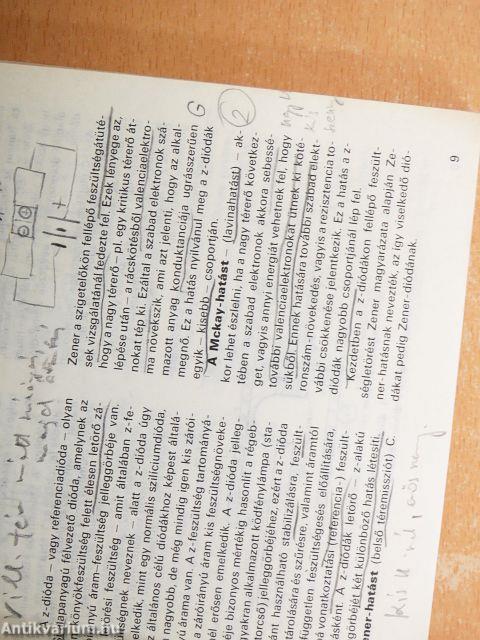 z-dióda – vagy referenciadióda – olyan
lapanyagú félvezető dióda, amelynek az
könyökfeszültség felett élesen letörő zá-
yú áram–feszültség jelleggörbéje van.
törési feszültség – amit általában z-fe-
tségnek neveznek – alatt a z-dióda úgy
elkedik, mint egy normális szilíciumdióda,
z általános célú diódákhoz képest általá-
nagyobb, de még mindig igen kis zárói-
yú árama van. A z-feszültség tartományá-
a záróirányú áram kis feszültségnöveke-
nél erősen emelkedik. A z-dióda jelleg-
éje bizonyos mértékig hasonlít a régeb-
yakran alkalmazott ködfénylámpa (sta-
torcső) jelleggörbéjéhez, ezért a z-dióda
ánt használható stabilizálásra, feszült-
tárolására és szűrésre, valamint áramtól
független feszültségesés előállítására,
á vonatkoztatási (referencia-) feszült-
ásként. A z-diódák letörő – z-alakú
görbéjét két különböző hatás létesíti.
ner-hatást (belső téremissziót) C.
Zener a szigetelőkön fellépő feszültségátüté-
sek vizsgálatánál fedezte fel. Ezek lényege az,
hogy a nagy térerő – pl. egy kritikus térerő át-
lépése után – a rácskötésből valenciaelektro-
nokat tép ki. Ezáltal a szabad elektronok szá-
ma növekszik, ami azt jelenti, hogy az alkal-
mazott anyag konduktanciája ugrásszerűen
megnő. Ez a hatás nyilvánul meg a z-diódák
egyik – kisebb – csoportján.
A Mckay-hatást – (lavinahatást) – ak-
kor lehet észlelni, ha a nagy térerő következ-
tében a szabad elektronok akkora sebessé-
get, vagyis annyi energiát vehetnek fel, hogy
további valenciaelektronokat ütnek ki köté-
sükből. Ennek hatására további szabad elekt-
ronszám-növekedés, vagyis a rezisztencia to-
vábbi csökkenése jelentkezik. Ez a hatás a z-
diódák nagyobb csoportjánál lép fel.
Kezdetben a z-diódákon fellépő feszült-
ségletörést Zener magyarázata alapján Ze-
ner-hatásnak nevezték, az így viselkedő dió-
dákat pedig Zener-diódának.
9
Antikvárium.hu